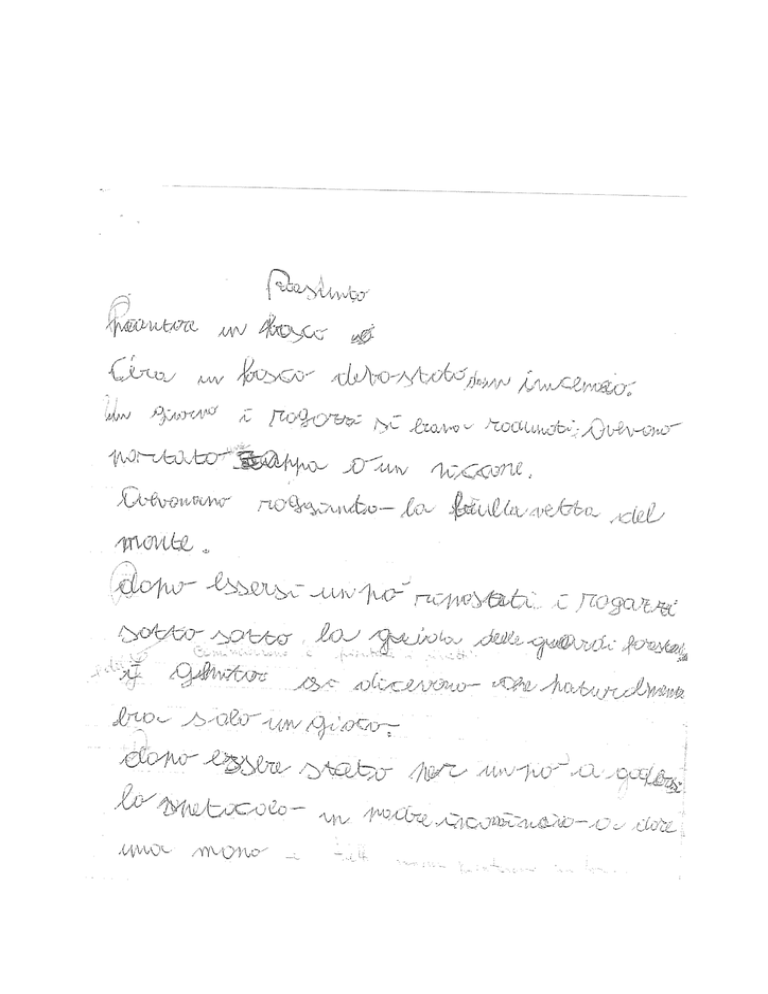 Riassunto
Piantare un bosco
C'era un bosco devastato da un incendio.
Un giorno i ragazzi si erano radunati. Avevano
portato zappa o un piccone.
Avevano raggiunto la brulla vetta del
monte.
dopo essersi un po' ripostati i ragazzi
sotto sotto la guida delle guardi forestali
genitor si dicevano che naturalmente
era solo un gioco.
dopo essere stato per un po' a godersi
lo spetacolo un padre incominciò a dare
una mano